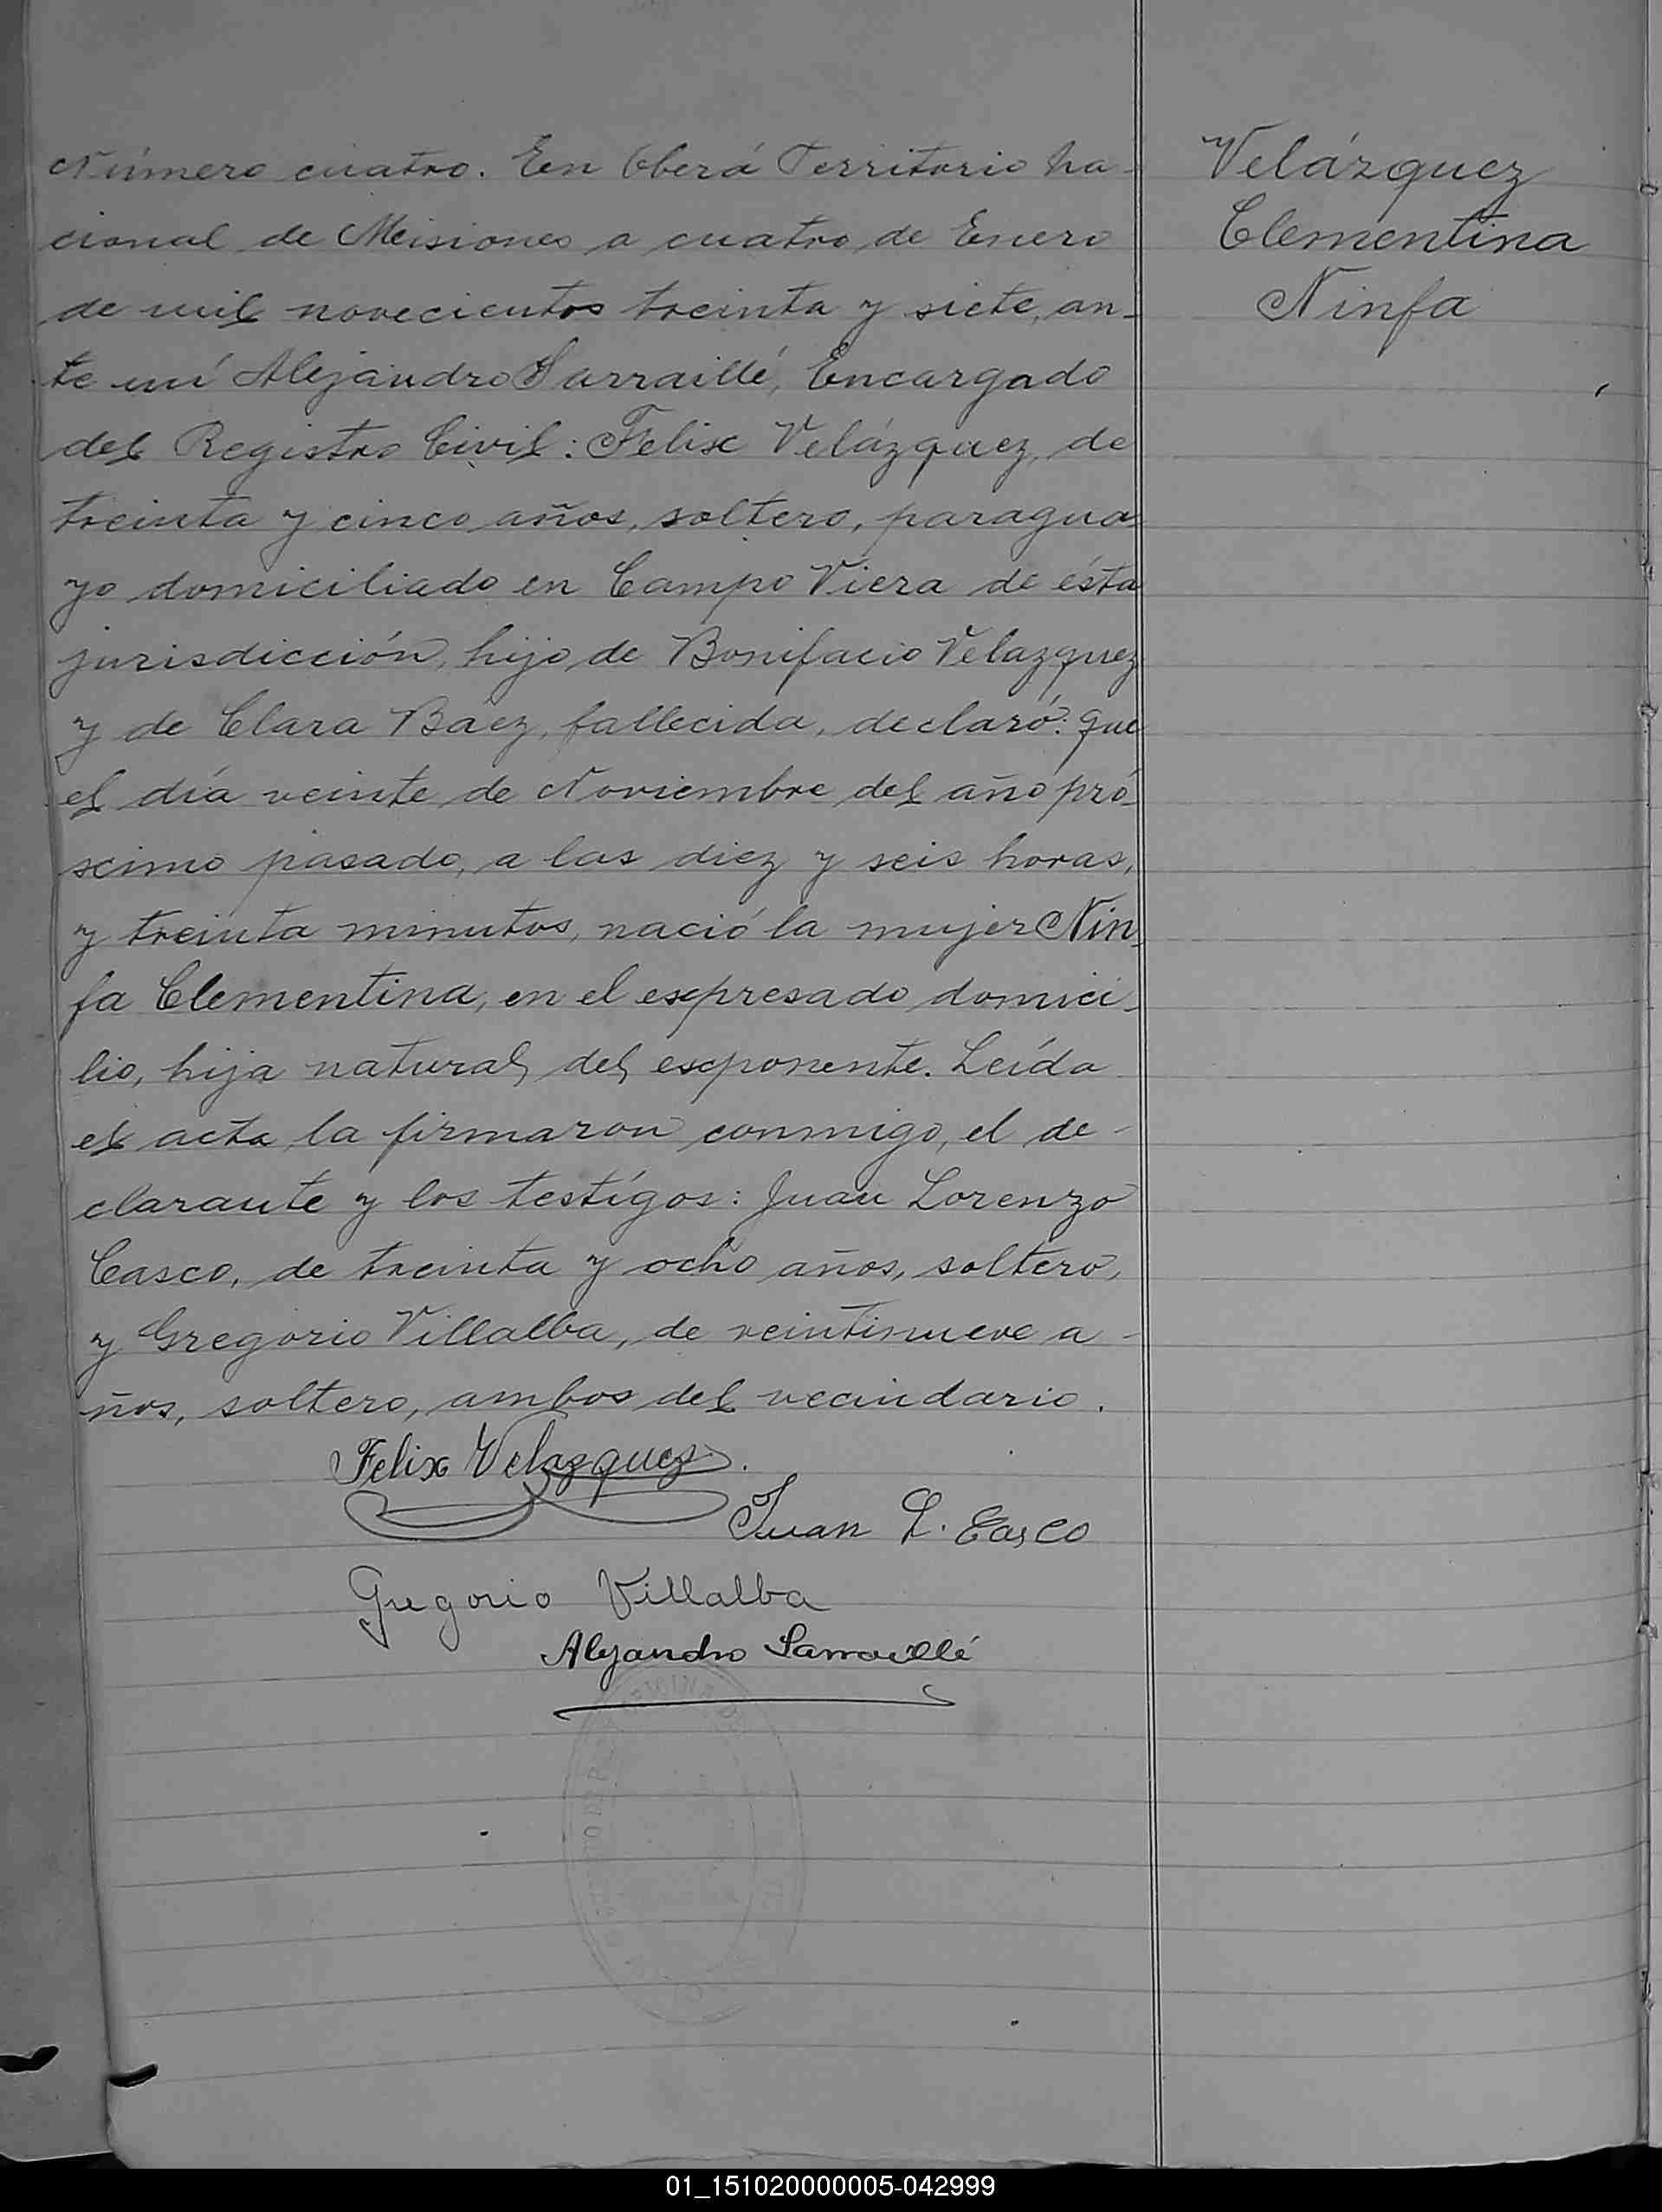 Número cuatro. En Oberá Territorio Na-
cional de Misiones a cuatro de Enero
de mil novecientos treinta y siete, an-
te mí Alejandro Sarraillé, Encargado
del Registro Civil: Felix Velázquez, de
treinta y cinco años, soltero, paragua
yo domiciliado en Campo Viera de ésta
jurisdicción, hijo de Bonifacio Velazquez
y de Clara Báez, fallecida, declaró: que
el día veinte de Noviembre del año pró-
ximo pasado, a las diez y seis horas,
y treinta minutos, nació la mujer Nin-
fa Clementina, en el expresado domici-
lio, hija natural del exponente. Leída
el acta la firmaron conmigo, el de-
clarante y los testígos: Juan Lorenzo
Casco, de treinta y ocho años, soltero,
y Gregorio Villalba, de veintinueve a-
ños, soltero, ambos del vecindario.
Felix Velazquez.
Juan L. Casco
Gregorio Villalba
Alejandro Sarraillé
Velázquez
Clementina
Ninfa
01_151020000005-042999